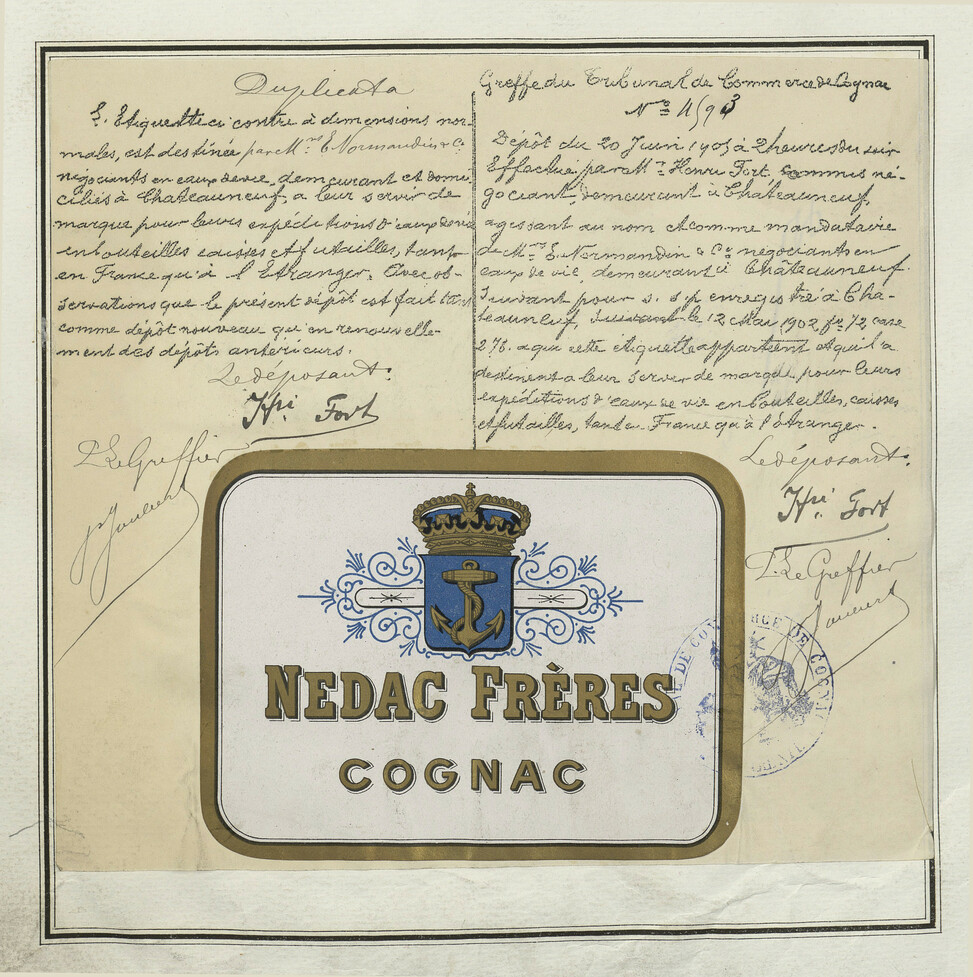 Duplicata
L'Etiquette ci contre à dimensions nor-
males, est destinée par Mrs E. Normandin & Co
négociants en eaux de vie, demeurant et domi-
ciliés à Chateauneuf, a leur servir de
marque pour leurs expéditions d'eaux de vie
en bouteilles caisses et futailles, tant
en France qu'à l'Etranger. Avec ob-
servations que le présent dépôt est fait tant
comme dépôt nouveau qu'en renouvelle-
ment des dépôts antérieurs.
Le déposant:
Hri Fort
Pr Le Greffier
Greffe du Tribunal de Commerce de Cognac
No 4593
Dépôt du 20 Juin 1903 à 2 heures du soir
Effectué par Mr Henri Fort commis né-
gociant, demeurant à Châteauneuf,
agissant au nom et comme mandataire
de Mrs E. Normandin & Co négociants en
eaux de vie demeurant à Châteauneuf.
Suivant pour s. s/p enregistré à Cha-
teauneuf, suivant le 12 Mai 1902 fo 72 case
275. a qui cette étiquette appartient et qu'il a
destinent a leur servir de marque pour leurs
expéditions d'eaux de vie en bouteilles, caisses
et futailles, tant en France qu'à l'étranger.
Le déposant:
Hri Fort
Pr Le Greffier
NEDAC FRÈRES
COGNAC
DE COMMERCE DE COGNAC